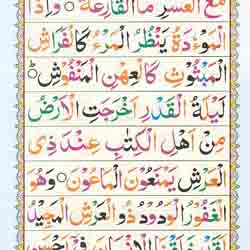 مَعَ الْعُسْرِ مَا الْقَارِعَةُ ○ وَاِذَا
الْمَوْءٗدَةُ يَنْظُرُ الْمَرْءُ كَالْفَرَاشِ
الْمَبْثُوْثِ كَالْعِهْنِ الْمَنْفُوْشِ ○ ط
لَيْلَةُ الْقَدْرِ اَخْرَجَتِ الْاَرْضُ
مِنْ اَهْلِ الْكِتٰبِ عِنْدَ ذِی
الْعَرْشِ يَمْنَعُوْنَ الْمَاعُوْنَ ○ وَهُوَ
الْغَفُوْرُ الْوَدُوْدُ ذُو الْعَرْشِ الْمَجِيْدُ
لَقَدْ خَلَقْنَا الْاِنْسَانَ فِیْۤ اَحْسَنِ